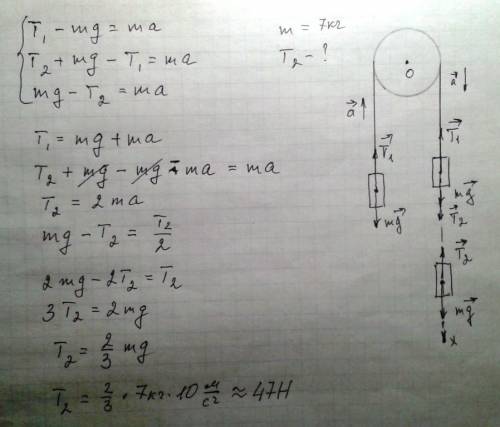 T₁ - mg = ma
T₂ + mg - T₁ = ma
mg - T₂ = ma
T₁ = mg + ma
T₂ + mg - mg - ma = ma
T₂ = 2ma
mg - T₂ = T₂/2
2mg - 2T₂ = T₂
3T₂ = 2mg
T₂ = 2/3 mg
T₂ = 2/3 · 7кг · 10 м/с² ≈ 47Н
m = 7кг
T₂ - ?
O
a
a
T₁
T₁
mg
mg
T₂
T₂
mg
x